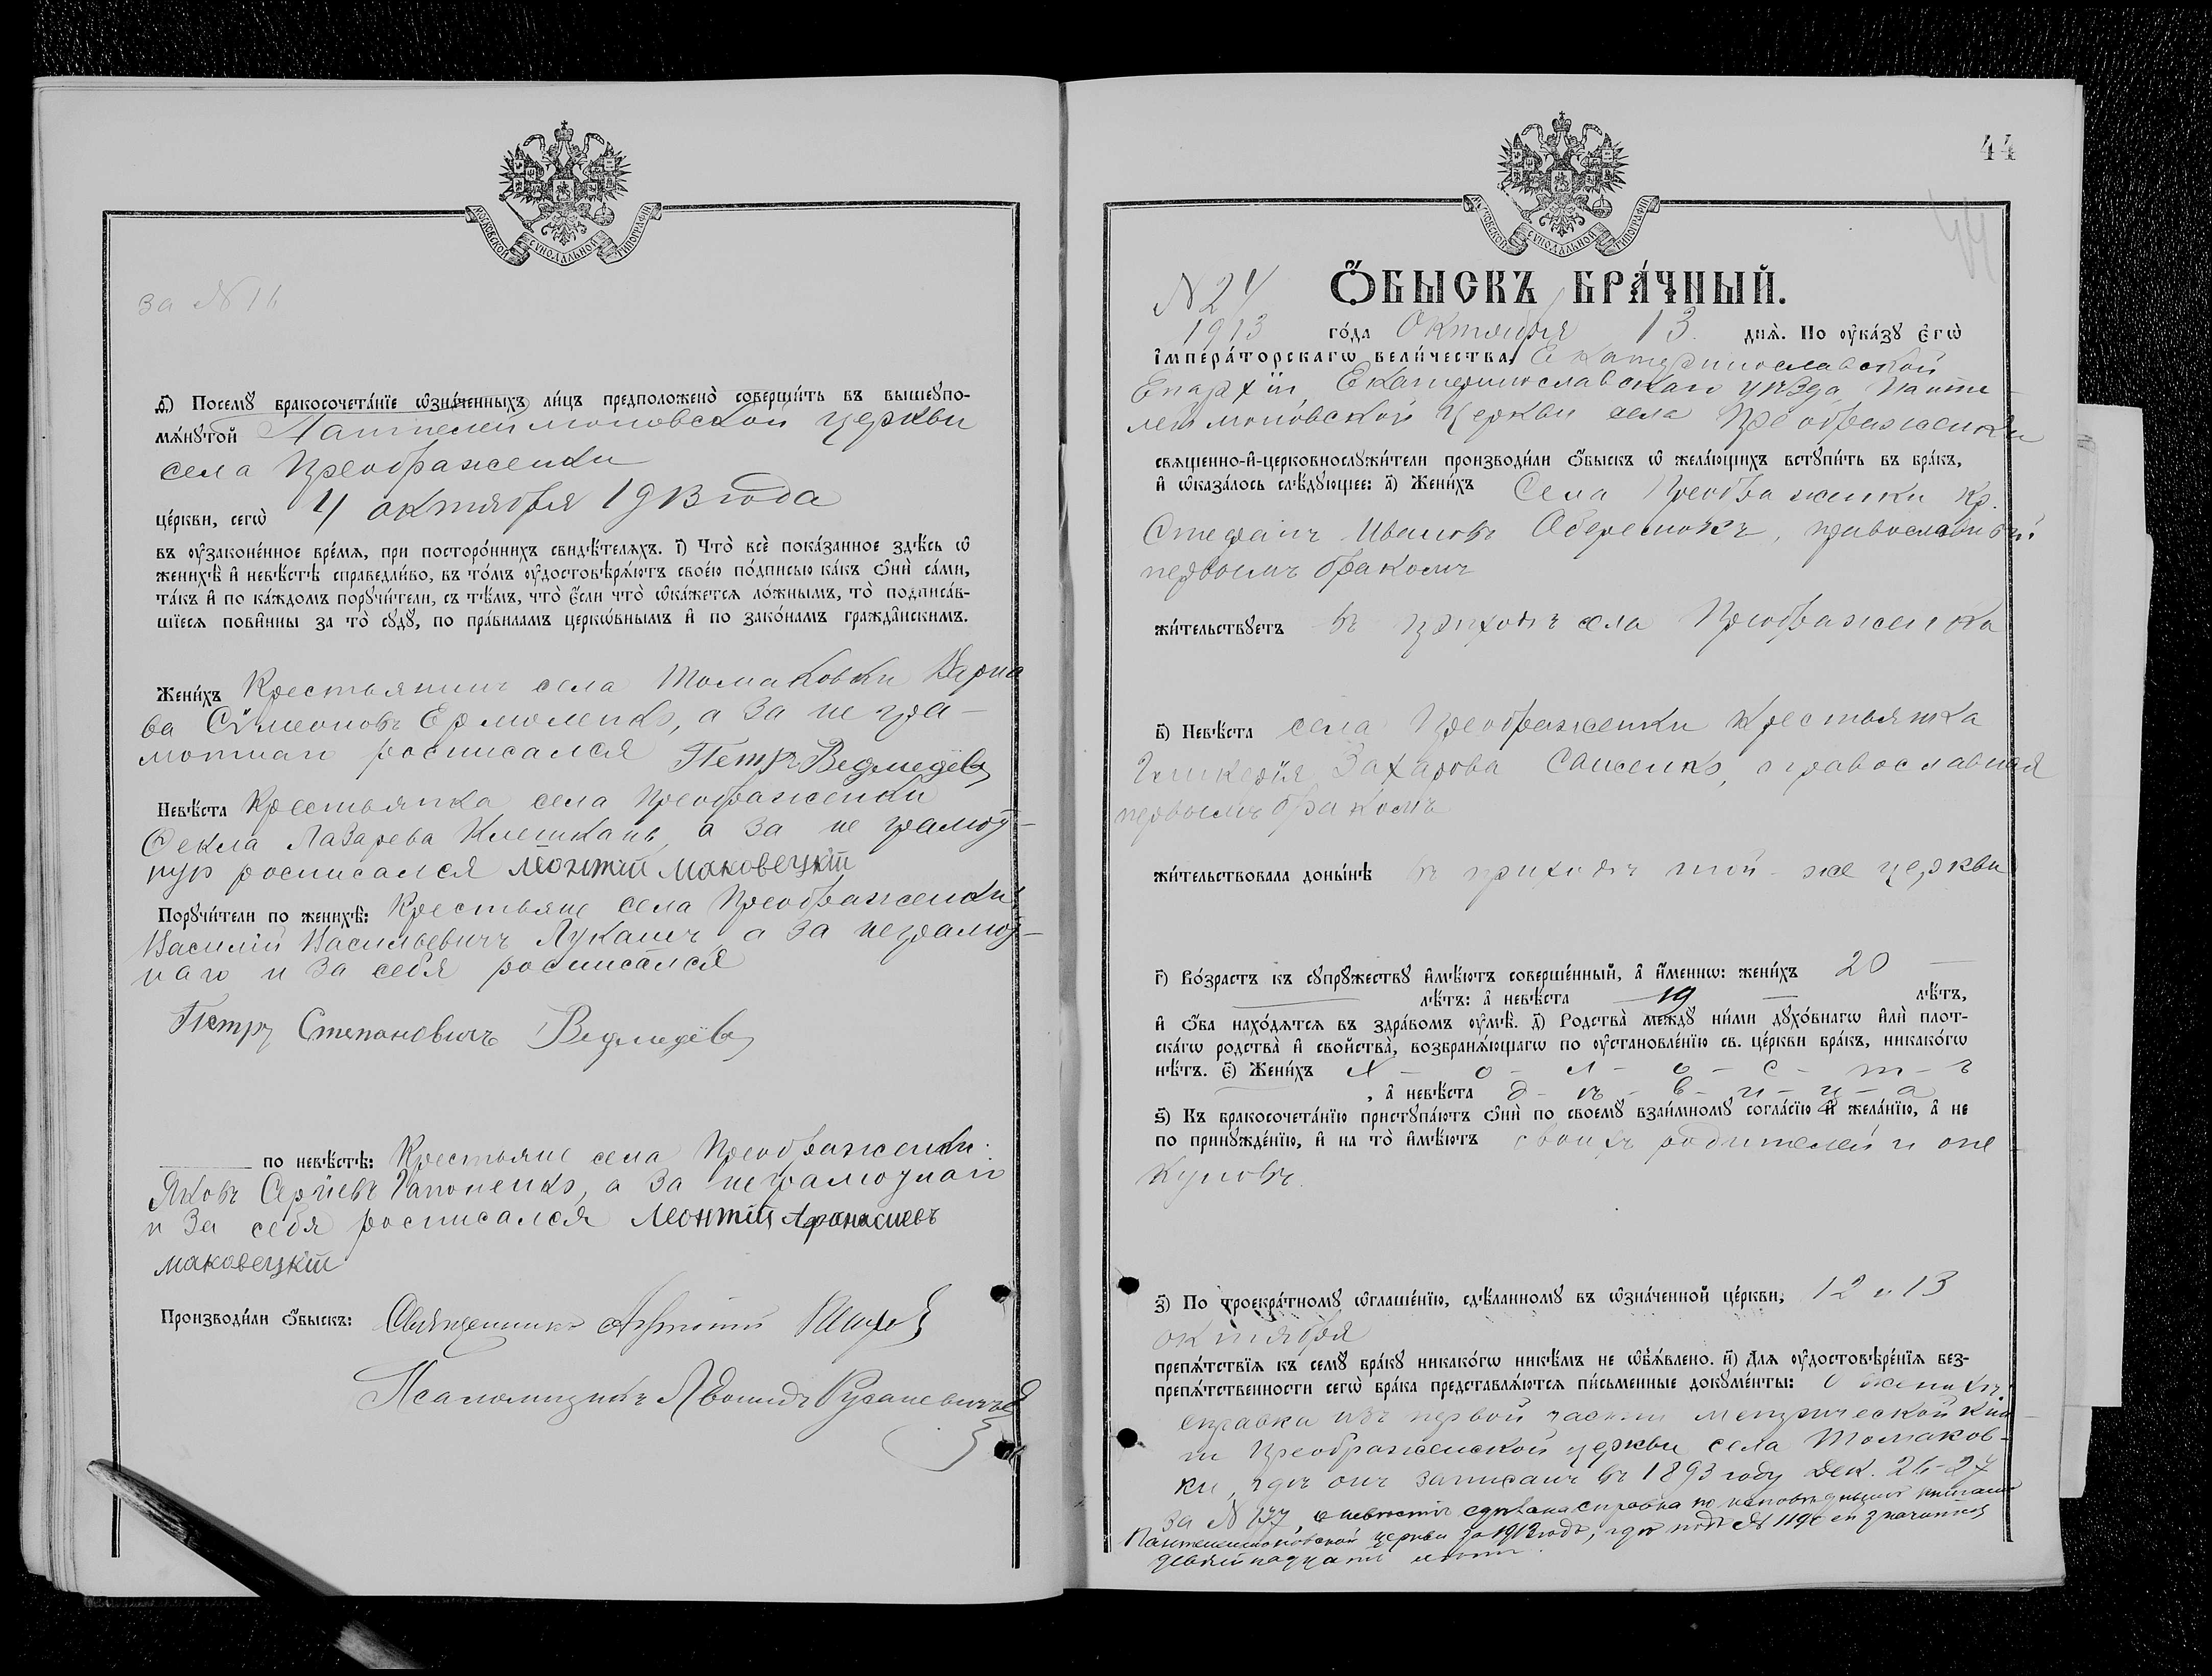 МОСКОВСКОЙ СѴНОДАЛЬНОЙ ТИПОГРАФІИ
за N 16
ѳ҃) Посемꙋ̀ бракосочета́нїе ѡзна́ченныхъ ли́цъ предположено̀ соверши́ть въ вышеꙋпо-
мѧ́нꙋтой Пантелеимоновской церкви
села Преображенки
це́ркви, сегѡ̀ 4 октября 1913 года
въ ᲂу҆законе́нное вре́мѧ, при посторо́ннихъ свидѣ́телѧхъ. і҃) Что̀ всѐ пока́занное здѣ́сь ѡ
женихѣ̀ и҆ невѣ́стѣ справедли́во, въ то́мъ ᲂу҆достовѣрѧ́ютъ свое́ю по́дписью ка́къ ѻ҆нѝ са́ми,
та́къ и҆ по ка́ждомъ порꙋчи́тели, съ тѣ́мъ, что̀ є҆́сли что̀ ѡ҆ка́жетсѧ ло́жнымъ, то̀ подписа́в-
шїесѧ пови́нны за то̀ сꙋдꙋ̀, по пра́виламъ церкѡ́внымъ и҆ по зако́намъ гражда̑нскимъ.
Жени́хъ Крестьянинъ села Томаковки Варна
ва Сѵмеоновъ Ермоленко, а за негра-
мотнаго росписался Петръ Ведмедевъ
Невѣ́ста Крестьянка села Преображенки
Ѳекла Лазарева Клешкань, а за неграмот-
ную росписался Леонтій Маковецкій
Порꙋчи́тели по женихѣ̀: Крестьяне села Преображенки:
Василій Васильевичъ Лукашъ, а за неграмот-
наго и за себя росписался
Петръ Степановичъ Ведмедевъ
по невѣ́стѣ: Крестьяне села Преображенки:
Яковъ Сергіевъ Гапоненко, а за неграмотнаго
и за себя росписался Леонтій Афанасиевъ
Маковецкій
Производи́ли ѻ҆́быскъ: Священникъ
Псаломщикъ Леонидъ
44
МОСКОВСКОЙ СѴНОДАЛЬНОЙ ТИПОГРАФІИ
44
N 24 Ѻ҆́БЫСКЪ БРА́ЧНЫЙ.
1913 го́да Октября 13 днѧ̀. По ᲂу҆ка́зꙋ Є҆гѡ̀
І҆мпера́торскагѡ вели́чества, Екатеринославской
Епархіи, Екатеринославскаго уѣзда, Панте-
леимоновской Церкви села Преображенки
свѧще́нно-и҆-церковнослꙋжи́тели производи́ли ѻ҆́быскъ ѡ҆ жела́ющихъ встꙋпи́ть въ бра́къ,
и҆ ѡ҆каза́лось слѣ́дꙋющее: а҃) Жени́хъ Села Преображенки кр.
Стефанъ Ивановъ Оберемокъ, православный
первымъ бракомъ
жи́тельствꙋетъ въ приходѣ села Преображенка
в҃) Невѣ́ста села Преображенки крестьянка
Гликерія Захарова, православная
первымъ бракомъ
жи́тельствовала доны́нѣ въ приходѣ той-же церкви
г҃) Во́зрастъ къ сꙋпрꙋ́жествꙋ и҆мѣ́ютъ соверше́нный, а҆ и҆́меннѡ: жени́хъ 20
лѣ́тъ: а҆ невѣ́ста 19 лѣ́тъ,
и҆ ѻ҆́ба нахо́дѧтсѧ въ здра́вомъ ᲂу҆мѣ̀. д҃) Родства̀ междꙋ̀ ни́ми дꙋхо́внагѡ и҆лѝ плот-
ска́гѡ родства̀ и҆ сво́йства̀, возбранѧ́ющагѡ по ᲂу҆становле́нїю св. це́ркви бра́къ, никако́гѡ
нѣ́тъ. є҃) Жени́хъ х-о-л-о-с-т-ъ
, а҆ невѣ́ста д-ѣ-в-и-ц-а
ѕ҃) Къ бракосочета́нїю пристꙋпа́ютъ ѻ҆нѝ по своемꙋ̀ взаи́мномꙋ согла́сїю и҆ жела́нїю, а҆ не
по принꙋжде́нїю, и҆ на то̀ и҆мѣ́ютъ своихъ родителей и опе-
куновъ.
з҃) По троекра́тномꙋ ѡ҆глаше́нїю, сдѣ́ланномꙋ въ ѡ҆зна́ченной це́ркви, 12 и 13
октября
препѧ́тствїѧ къ семꙋ̀ бра́кꙋ никако́гѡ никѣ́мъ не ѡ҆б̾ѧ́влено. и҃) Длѧ ᲂу҆достовѣре́нїѧ без-
препѧ́тственности сегѡ̀ бра́ка представлѧ́ютсѧ пи́сьменные докꙋме́нты: о женихѣ,
справки изъ первой части метрической кни-
ги Преображенской церкви села Томаков-
ки, гдѣ онъ записанъ въ 1893 году Дек. 26-27
за N, о невѣстѣ сдѣлана справка по исповѣднымъ книгамъ
Пантелеимоновской церкви за 1912 годъ, гдѣ подъ № ей значится
девятнадцать лѣтъ.